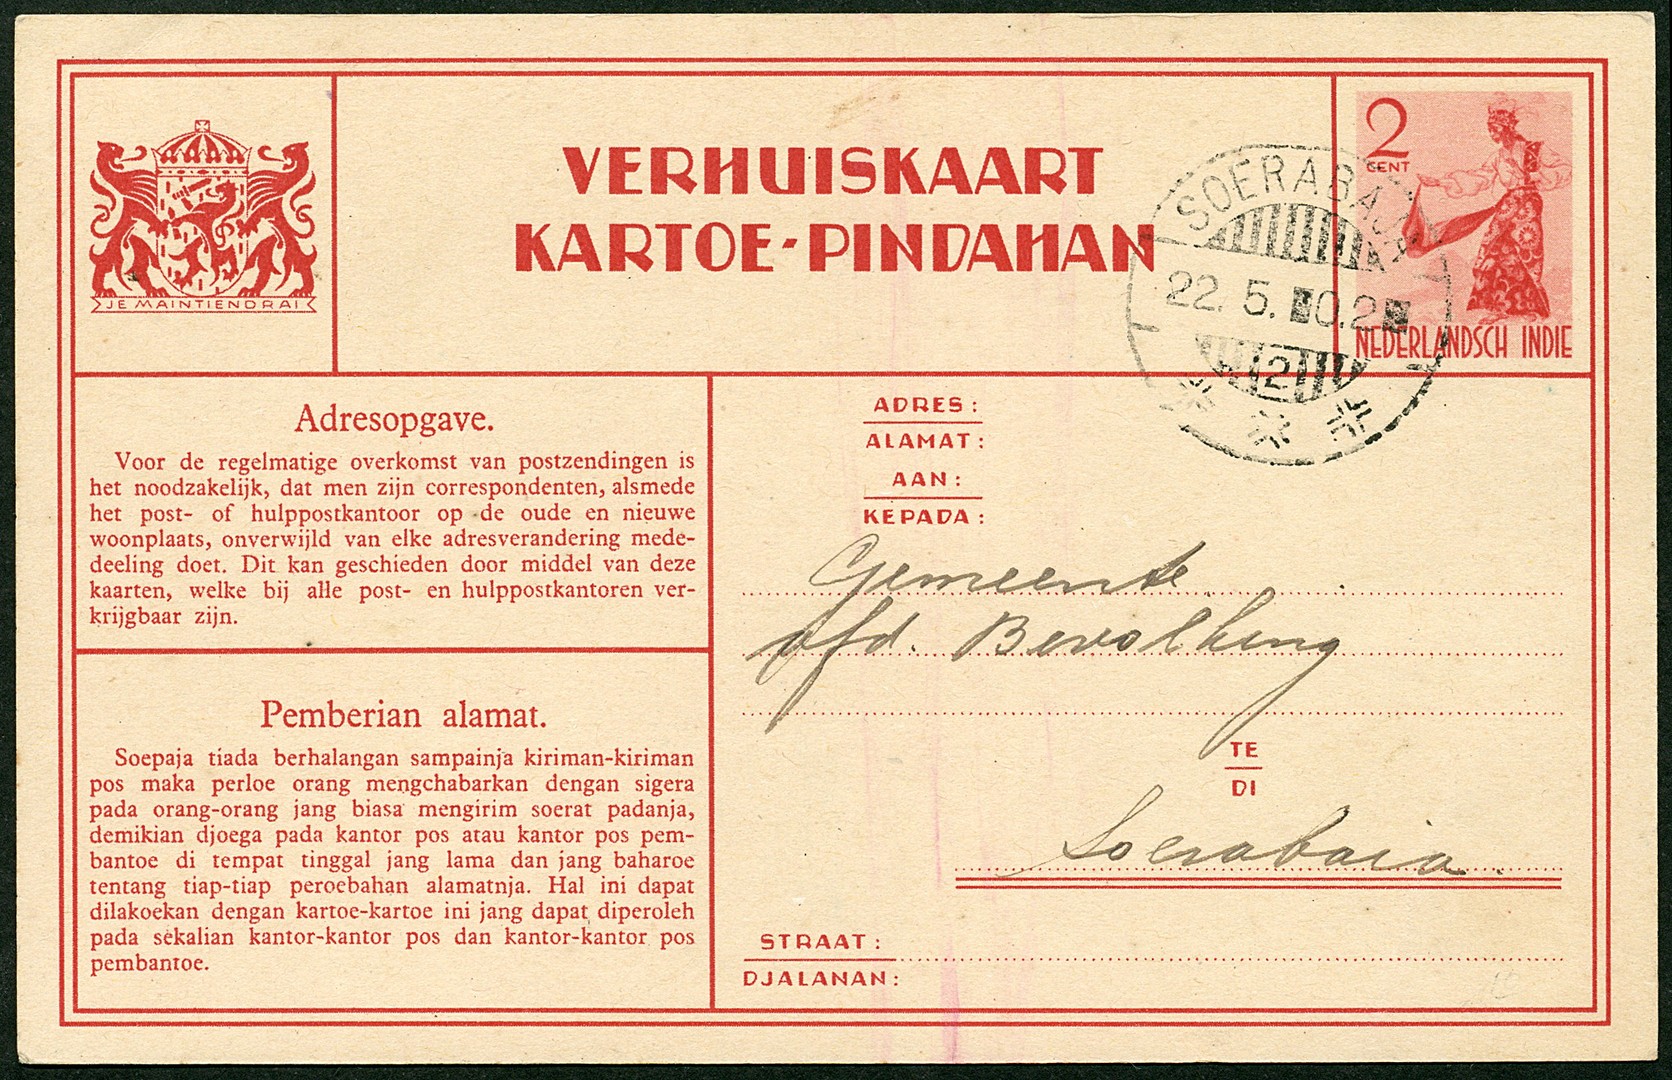 JE MAINTIENDRAI
VERHUISKAART
KARTOE-PINDAHAN
2
CENT
NEDERLANDSCH INDIE
SOERABAJA
22. 5. 0.2
2
Adresopgave.
Voor de regelmatige overkomst van postzendingen is
het noodzakelijk, dat men zijn correspondenten, alsmede
het post- of hulppostkantoor op de oude en nieuwe
woonplaats, onverwijld van elke adresverandering mede-
deeling doet. Dit kan geschieden door middel van deze
kaarten, welke bij alle post- en hulppostkantoren ver-
krijgbaar zijn.
Pemberian alamat.
Soepaja tiada berhalangan sampainja kiriman-kiriman
pos maka perloe orang mengchabarkan dengan sigera
pada orang-orang jang biasa mengirim soerat padanja,
demikian djoega pada kantor pos atau kantor pos pem-
bantoe di tempat tinggal jang lama dan jang baharoe
tentang tiap-tiap peroebahan alamatnja. Hal ini dapat
dilakoekan dengan kartoe-kartoe ini jang dapat diperoleh
pada sekalian kantor-kantor pos dan kantor-kantor pos
pembantoe.
ADRES:
ALAMAT:
AAN:
KEPADA:
Gemeente
afd. Bevolking
TE
DI
Soerabaia.
STRAAT:
DJALANAN: